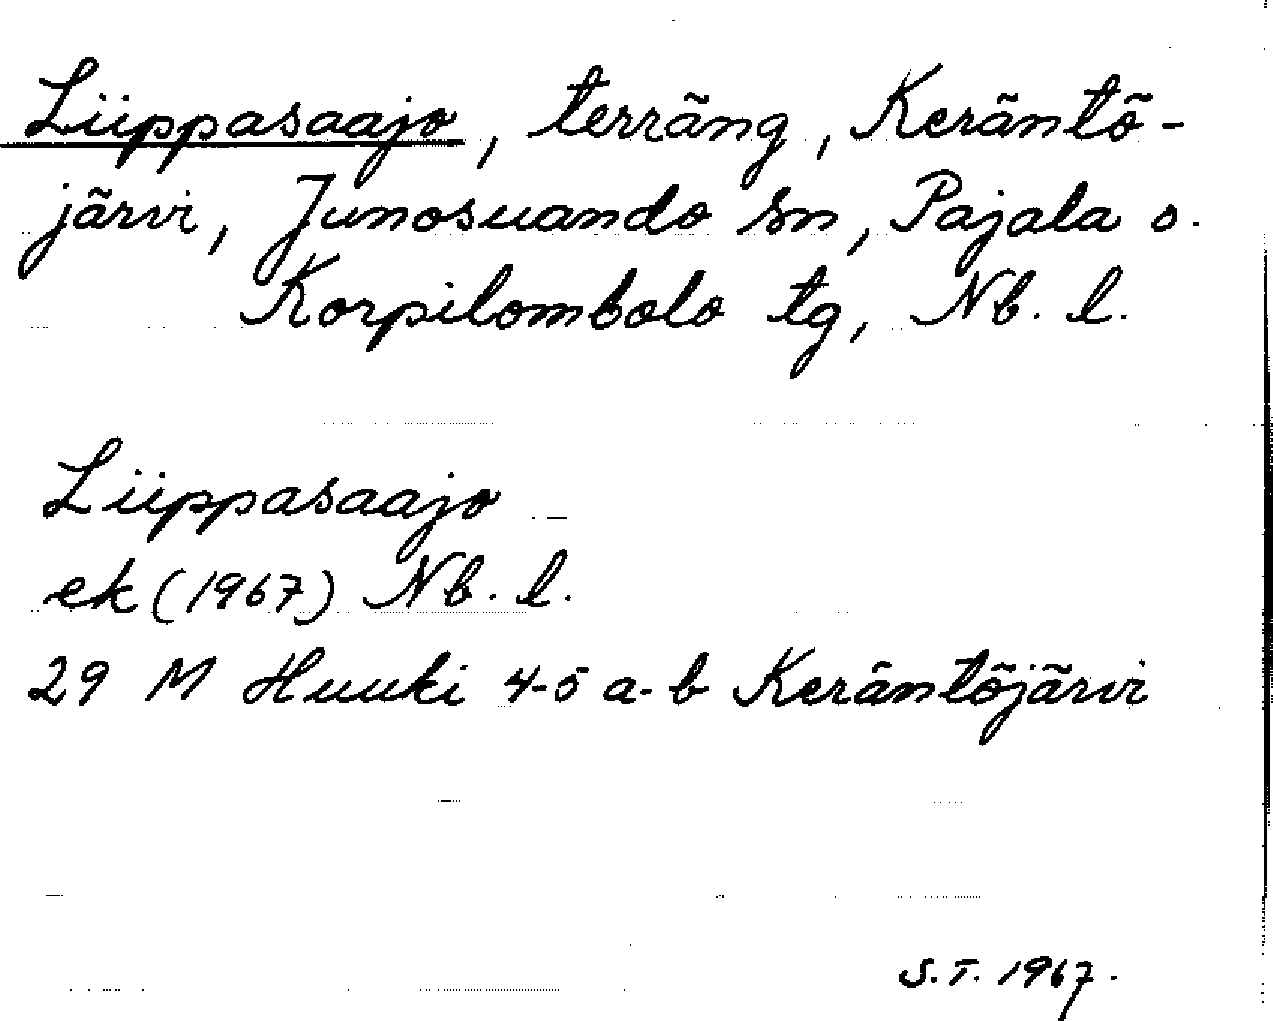 Liippasaajo, terräng, Keräntö-
järvi, Junosuando sn, Pajala o.
Korpilombolo tg, Nb. l.
Liippasaajo
ek (1967) Nb. l.
29 M Huuki 4-5 a-b Keräntöjärvi
S.T. 1967.